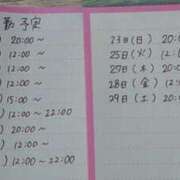 勤予定
) 20:00〜
) 12:00〜
) 12:00〜
) 12:00〜
) 15:00〜
) 12:00〜22:00
) 20:00〜
) 12:00〜
) 12:00〜22:00
23日(日) 20:00
25日(火) 12:00
27日(木) 20:00
28日(金) 12:00
29日(土) 20:00